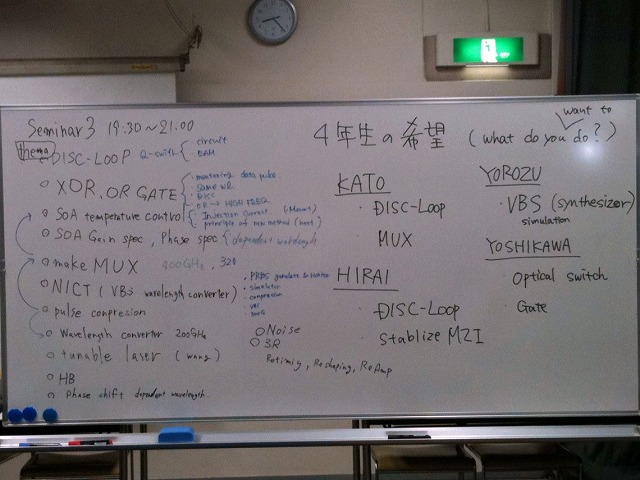 Seminar 3 19:30~21:00
thema
DISC-LOOP Q-swith { circuit
EAM
XOR, OR GATE { monitoring data pulse
same WL
DISC
OR → HIGH FREQ
SOA temperature control { Injection current
principle of new method
SOA Gain spec, Phase spec { dependent wavelength
make MUX 400GHz, 320
NICT (VBS wavelength converter)
simulator
compression
pulse compresion
Wavelength converter 200GHz
tunable laser (wang)
HB
Phase shift dependent wavelength
Noise
3R
Retimig, Reshaping, ReAmp
4年生の希望 (what do you want to do?)
KATO
・DISC-Loop
・MUX
HIRAI
・DISC-Loop
・Stablize MZI
YOROZU
・VBS (synthesizer)
simulation
YOSHIKAWA
・Optical switch
・Gate